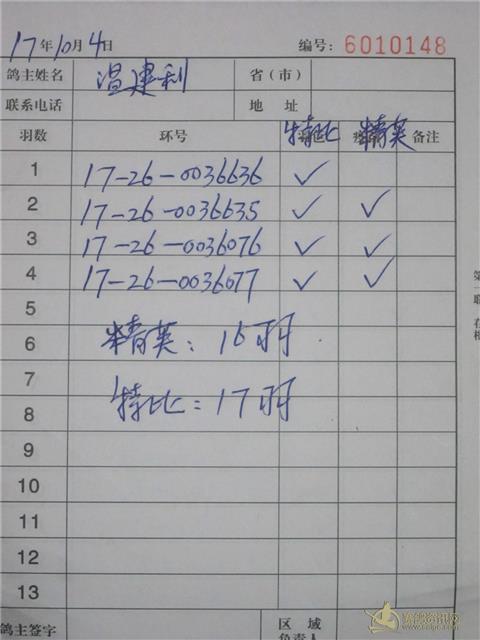 17年10月4日 编号: 6010148
鸽主姓名 温建利 省(市)
联系电话 地 址
羽数 环号 特比 精英 备注
1 17-26-0036636 ✓
2 17-26-0036635 ✓ ✓
3 17-26-0036076 ✓ ✓
4 17-26-0036077 ✓ ✓
5
6 精英: 16羽
7
8 特比: 17羽
9
10
11
12
13
鸽主签字 区 域
负责人
第一联